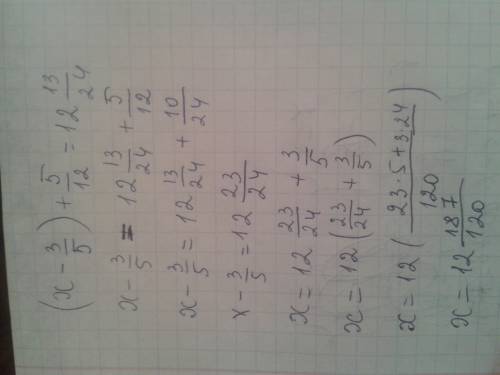 (x - 3/5) + 5/12 = 12 13/24
x - 3/5 = 12 13/24 + 5/12
x - 3/5 = 12 13/24 + 10/24
x - 3/5 = 12 23/24
x = 12 23/24 + 3/5
x = 12 (23/24 + 3/5)
x = 12 (23·5+3·24/120)
x = 12 187/120